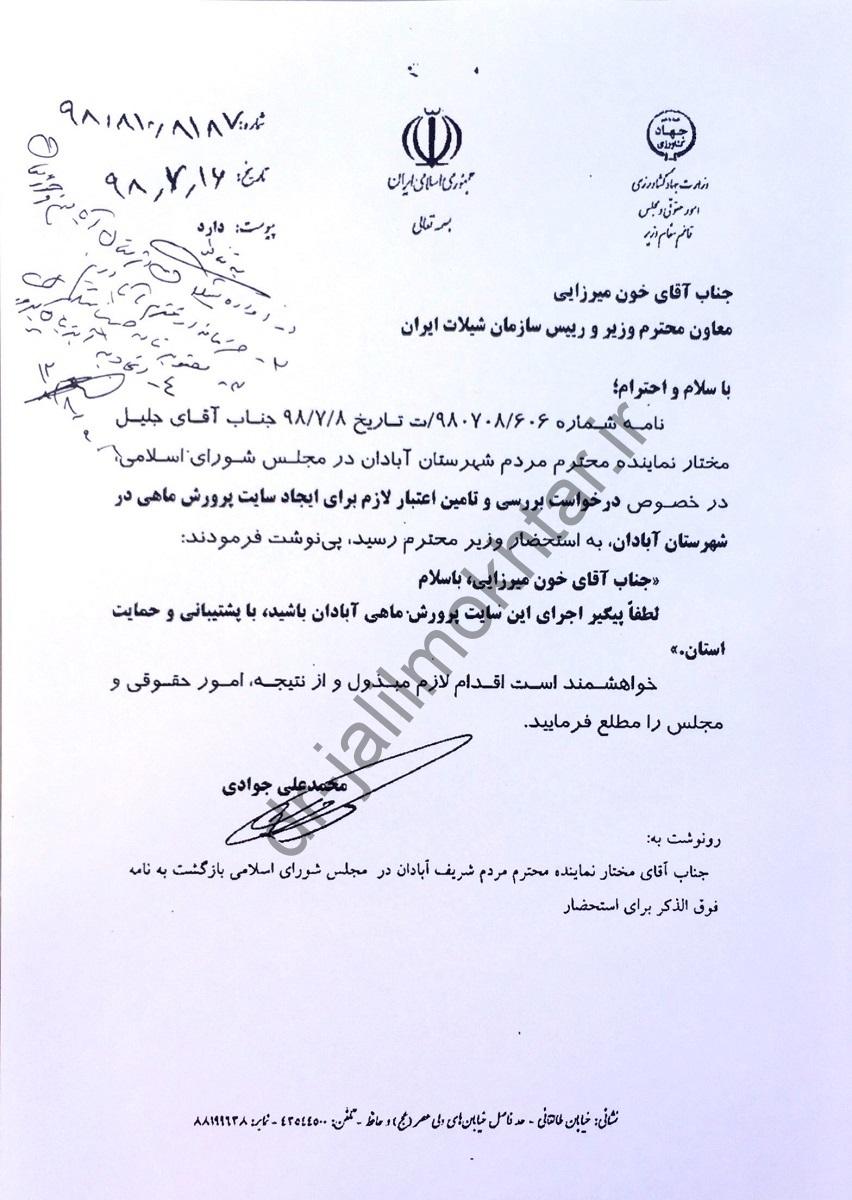 جهاد
کشاورزی
وزارت جهاد کشاورزی
امور حقوقی و مجلس
قائم مقام وزیر
جمهوری اسلامی ایران
بسمه تعالی
شماره:
تاریخ: ۹۸٫۷٫۱۶
پیوست: دارد
جناب آقای خون میرزایی
معاون محترم وزیر و رییس سازمان شیلات ایران
با سلام و احترام؛
نامه شماره ۹۸۰۷۰۸/۶۰۶/ت تاریخ ۹۸/۷/۸ جناب آقای جلیل
مختار نماینده محترم مردم شهرستان آبادان در مجلس شورای اسلامی،
در خصوص درخواست بررسی و تامین اعتبار لازم برای ایجاد سایت پرورش ماهی در
شهرستان آبادان، به استحضار وزیر محترم رسید، پی‌نوشت فرمودند:
«جناب آقای خون میرزایی، باسلام
لطفاً پیگیر اجرای این سایت پرورش ماهی آبادان باشید، با پشتیبانی و حمایت
استان.»
خواهشمند است اقدام لازم مبذول و از نتیجه، امور حقوقی و
مجلس را مطلع فرمایید.
محمدعلی جوادی
رونوشت به:
جناب آقای مختار نماینده محترم مردم شریف آبادان در مجلس شورای اسلامی بازگشت به نامه
فوق الذکر برای استحضار
نشانی: خیابان طالقانی - حد فاصل خیابان‌های ولی عصر (عج) و حافظ - تلفن: ۴۳۵۴۴۵۰۰ - نمابر: ۸۸۱۹۹۶۳۸
dr-jalilmokhtar.ir